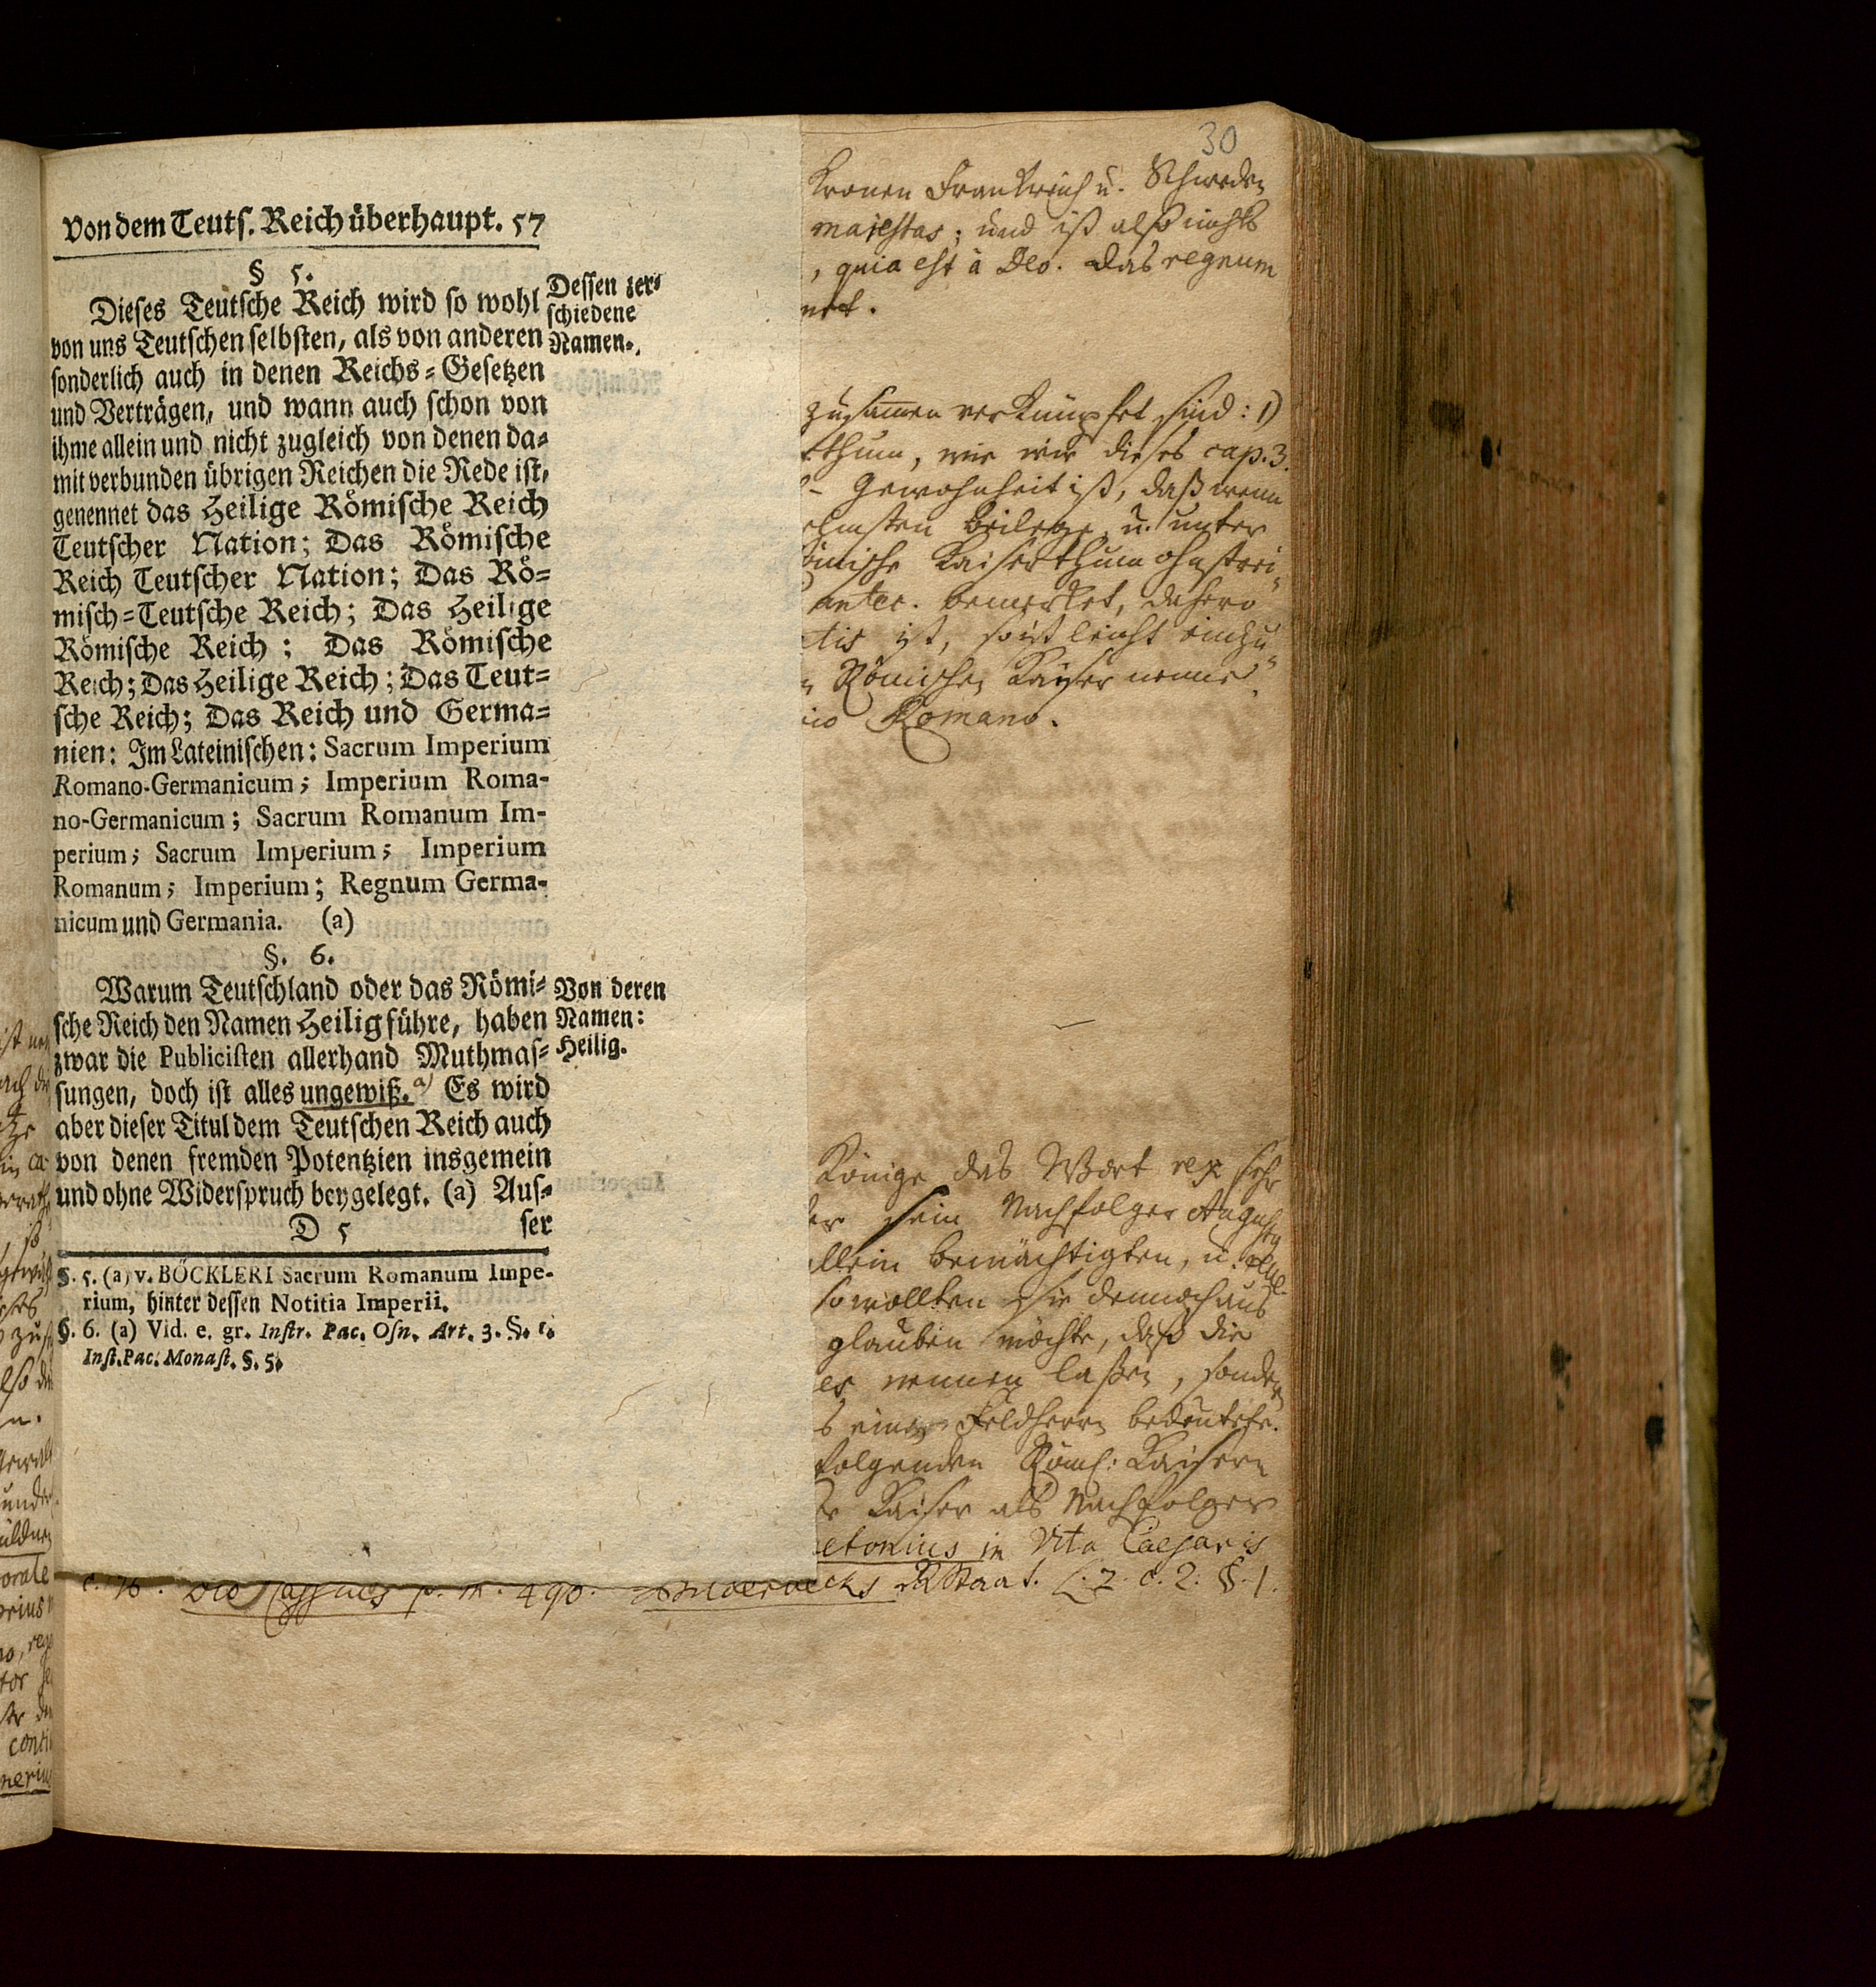 von dem Teutſ. Reich überhaupt. 57
§ 5.
Dieſes Teutſche Reich wird ſo wohl
von uns Teutſchen ſelbſten, als von anderen
ſonderlich auch in denen Reichs-Geſetzen
und Verträgen, und wann auch ſchon von
ihme allein und nicht zugleich von denen da-
mit verbunden übrigen Reichen die Rede iſt,
genennet das Heilige Römiſche Reich
Teutſcher Nation; Das Römiſche
Reich Teutſcher Nation; Das Rö-
miſch-Teutſche Reich; Das Heilige
Römiſche Reich; Das Römiſche
Reich; Das Heilige Reich; Das Teut-
ſche Reich; Das Reich und Germa-
nien: Im Lateiniſchen: Sacrum Imperium
Romano-Germanicum; Imperium Roma-
no-Germanicum; Sacrum Romanum Im-
perium; Sacrum Imperium; Imperium
Romanum; Imperium; Regnum Germa-
nicum und Germania. (a)
Deſſen zer-
ſchiedene
Namen.
§. 6.
Warum Teutſchland oder das Römi-
ſche Reich den Namen Heilig führe, haben
zwar die Publiciſten allerhand Muthmaſ-
ſungen, doch iſt alles ungewiß. a) Es wird
aber dieſer Titul dem Teutſchen Reich auch
von denen fremden Potentzien insgemein
und ohne Widerſpruch beygelegt. (a) Auſ-
D 5 ſer
Von deren
Namen:
Heilig.
§. 5. (a) v. BÖCKLERI Sacrum Romanum Impe-
rium, hinter deſſen Notitia Imperii.
§. 6. (a) Vid. e. gr. Inſtr. Pac. Oſn. Art. 3. §. 1.
Inſt. Pac. Monaſt. §. 5.
30
Kronen Frankreich u. Schweden
majestas; und iſt alſo nichts
, quia est à Deo. das regnum
zuſamen verknüpfet ſind: 1)
thum, wie wir dieſes cap. 3.
Gewohnheit iſt, daß wenn
u. unter
Kaiſerthum
antec. bemerket, dahero
tis iſt, ſo iſt leicht einzu
Römiſchen Kayſer
Romano.
Könige das Wort rex ſehr
ſein Nachfolger
allein bemächtigten, u.
ſo wollten ſie dennoch
glauben möchte, daß die
nennen laßen, ſondern
eines Feldherrn bedeutete.
folgenden Römſ: Kaiſern
Kaiſer als Nachfolger
etonius in Vita Caesaris
Dio Caſſius p. m. 490. Staat. L. 2. c. 2. §. 1.